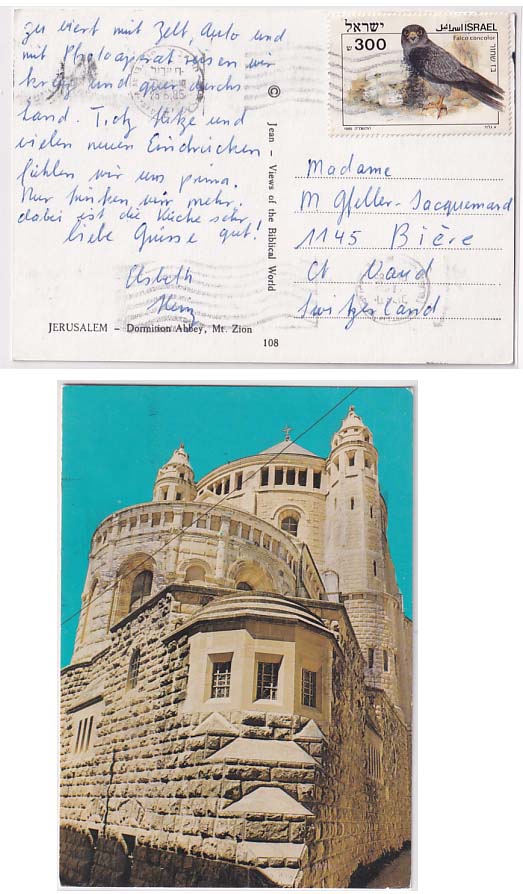 zu viert mit Zelt, Auto und
mit Photoapparat reisen wir
kreuz und quer durchs
Land. Trotz Hitze und
vielen neuen Eindrücken
fühlen wir uns prima.
Nur trinken wir mehr,
dabei ist die Küche sehr
liebe Grüsse gut!
Elsbeth
JERUSALEM – Dormition Abbey, Mt. Zion
108
© Jean – Views of the Biblical World
ישראל اسرائيل ISRAEL
Falco concolor
בז שחור
300
1985
Madame
M Gfeller-Jacquemard
1145 Bière
Ct Vaud
Switzerland